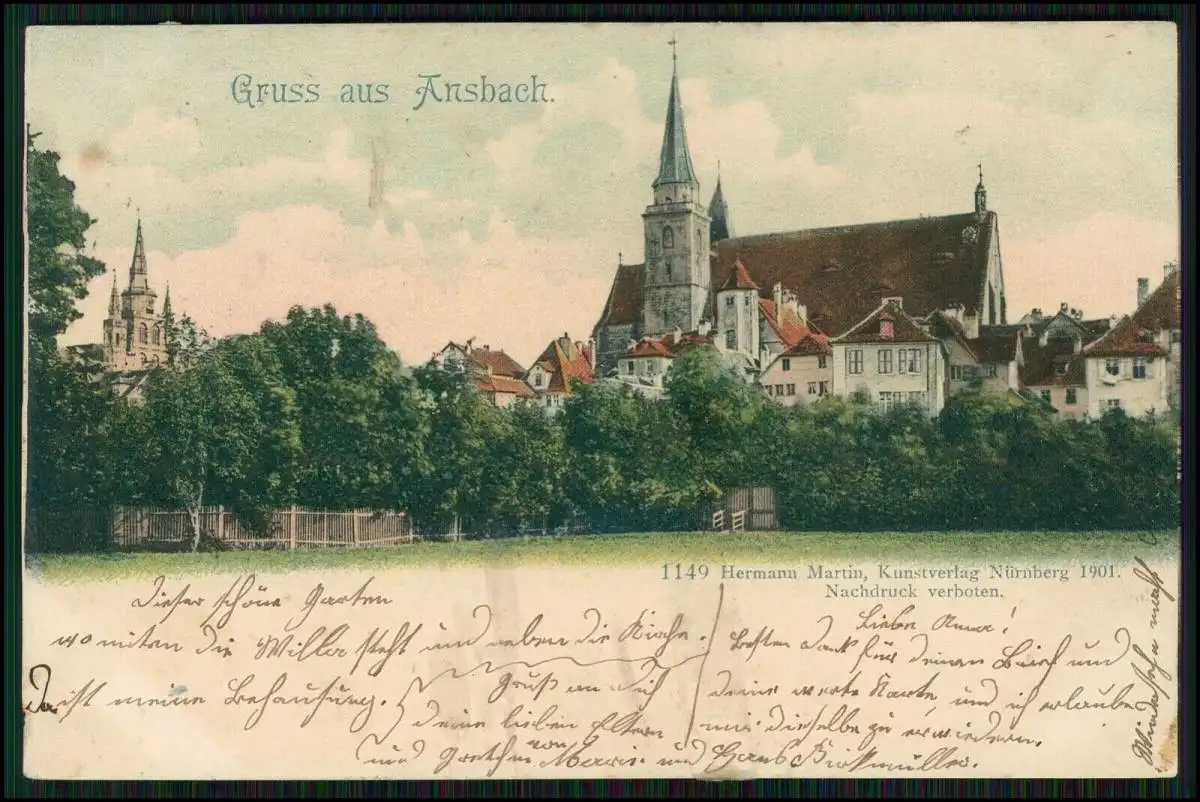 Gruss aus Ansbach.
1149 Hermann Martin, Kunstverlag Nürnberg 1901.
Nachdruck verboten.
Dieser schöne Garten
wo mitten die Willa steht und neben die Kirche.
Da ist meine Behausung.
Gruß an Dich
deine lieben Eltern
und Gretchen von Marie und Hans Birkmüller.
Liebe Anna!
Besten Dank für deinen Brief und
deine werte Karte, und ich erlaube
mir dieselbe zu erwiedern.